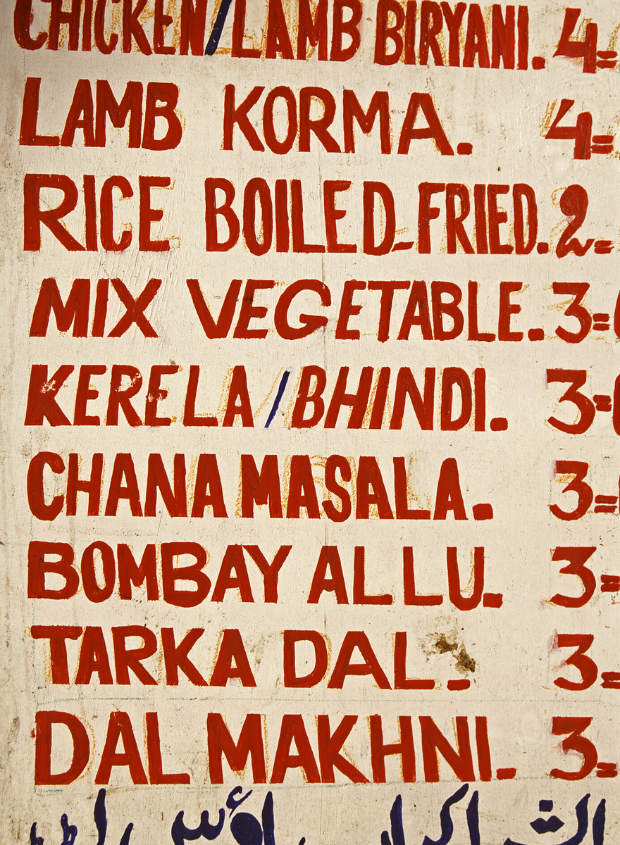 CHICKEN/LAMB BIRYANI. 4=
LAMB KORMA. 4=
RICE BOILED-FRIED. 2=
MIX VEGETABLE. 3=
KERELA/BHINDI. 3=
CHANA MASALA. 3=
BOMBAY ALLU. 3=
TARKA DAL. 3=
DAL MAKHNI. 3=